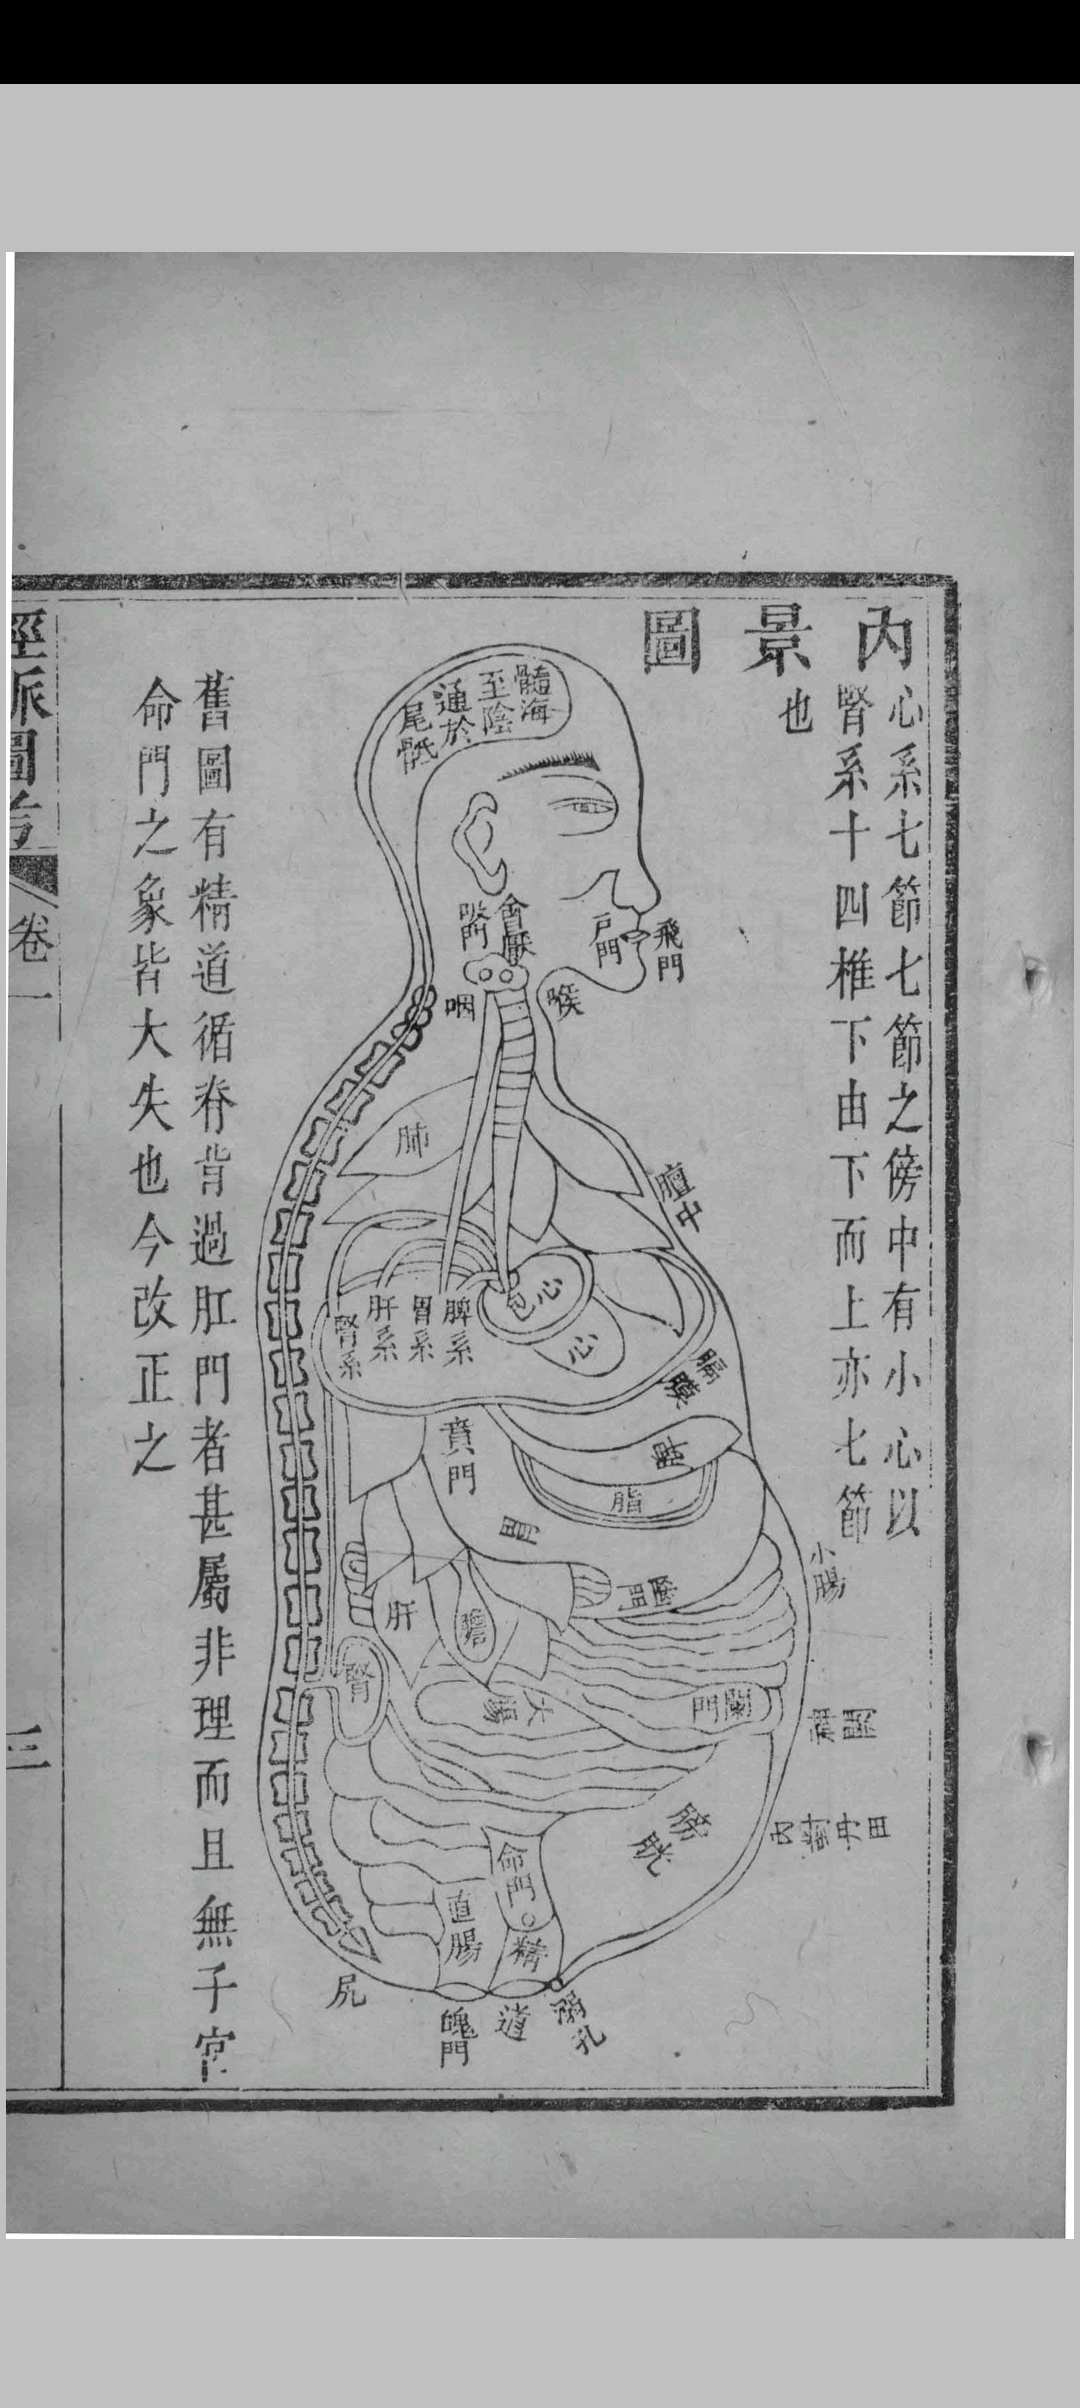 內景圖
心系七節七節之傍中有小心以
腎系十四椎下由下而上亦七節
也
髓海
至陰
通於
尾骶
會厭
吸門
戶門
飛門
咽
喉
肺
膻中
心包
心
脾系
胃系
肝系
腎系
膈膜
賁門
脾
脂
胃
幽門
小腸
肝
膽
腎
大腸
闌門
膀胱
丹田
命門
直腸
精道
尻
魄門
溺孔
舊圖有精道循脊背過肛門者甚屬非理而且無子宮
命門之象皆大失也今改正之
經脈圖考
卷一
三